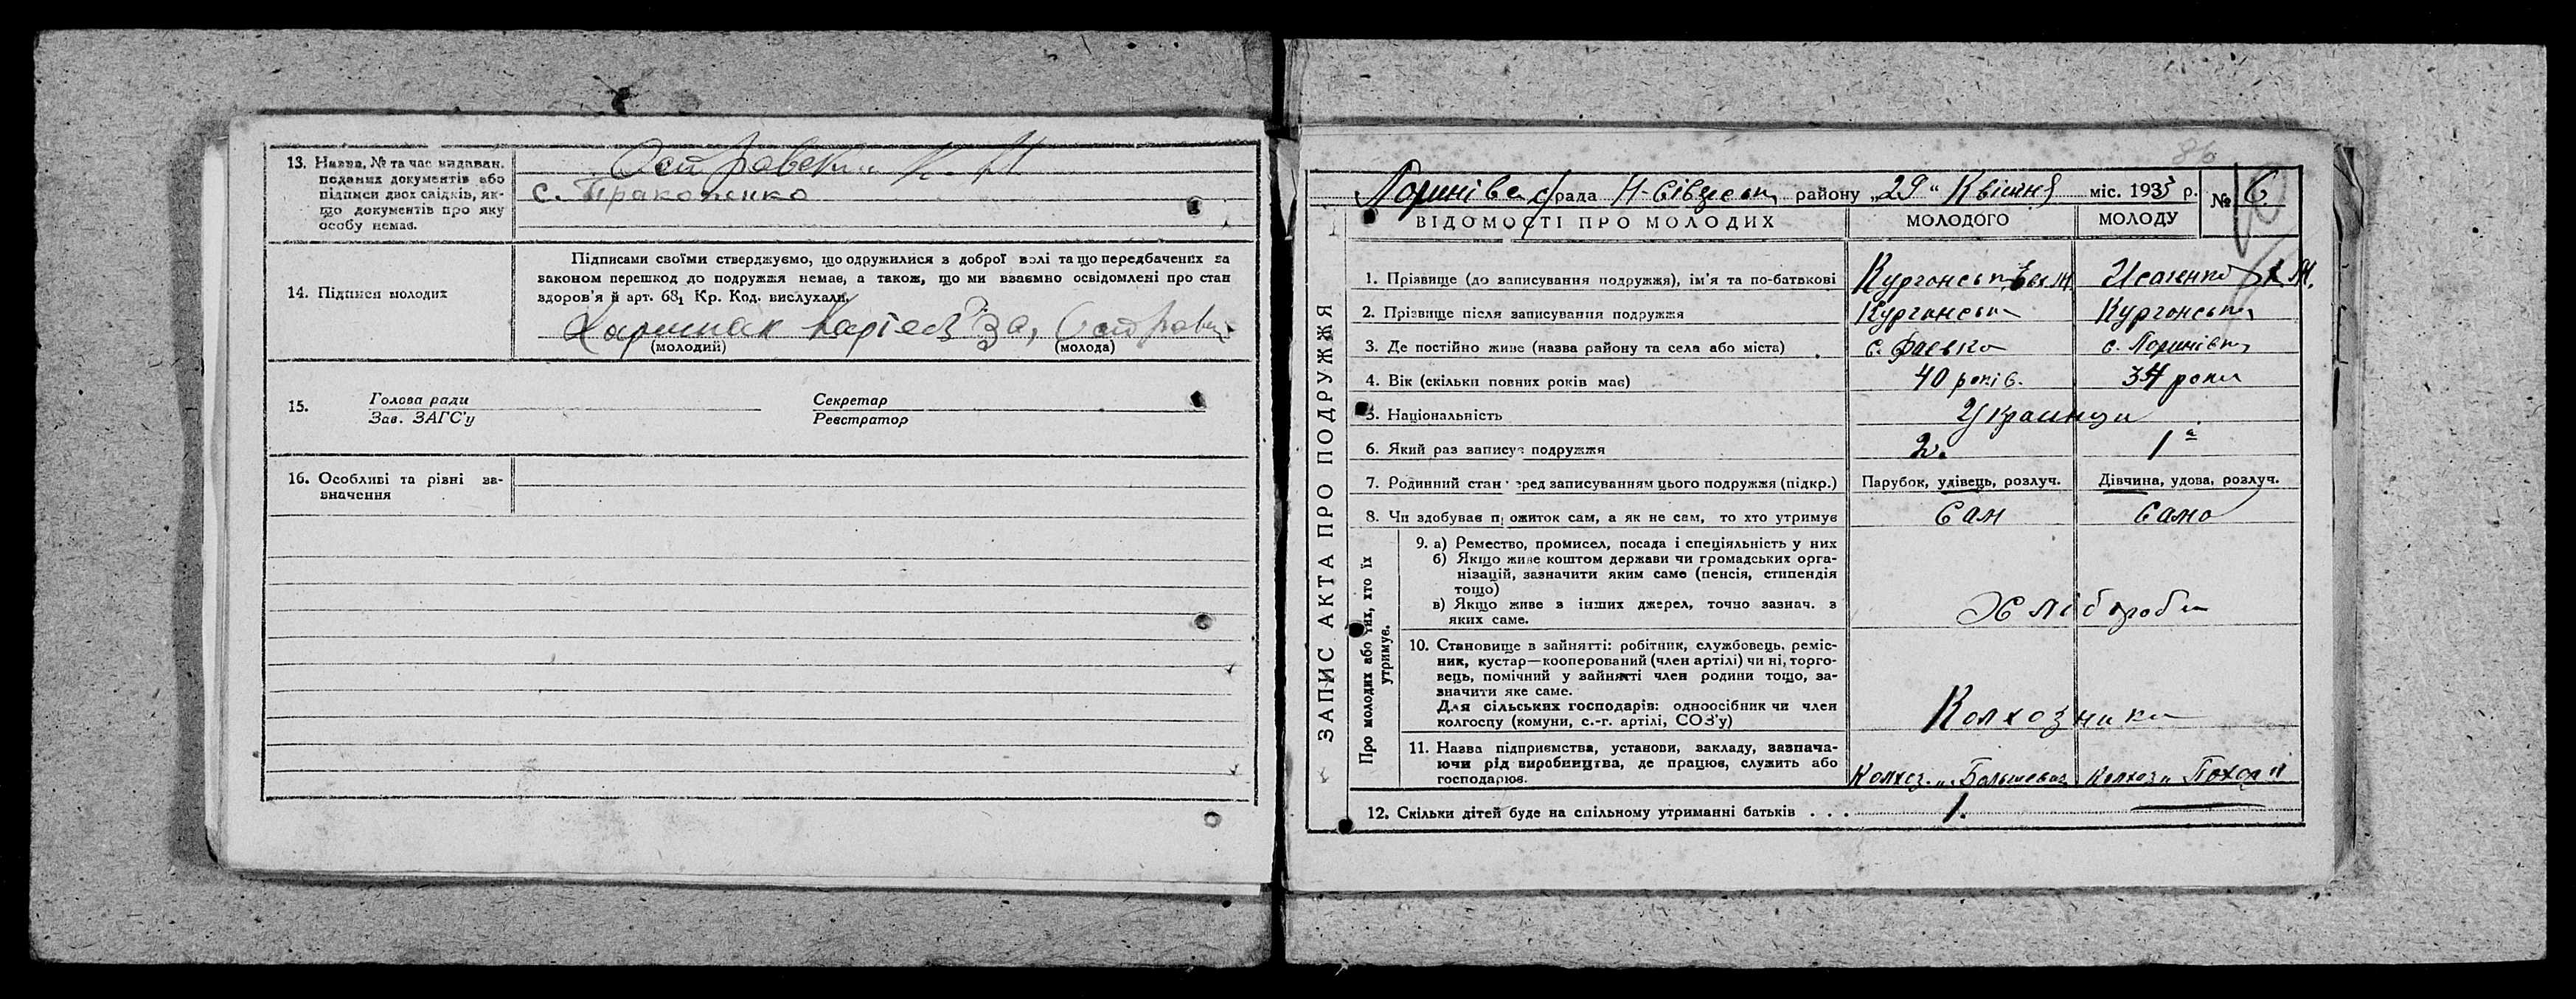 13. Назва, № та час видаван.
поданих документів або
підписи двох свідків, як-
що документів про яку
особу немає.
с. Праконенко
14. Підписи молодих
Підписами своїми стверджуємо, що одружилися з доброї волі та що передбачених за
законом перешкод до подружжя немає, а також, що ми взаємно освідомлені про стан
здоров'я й арт. 68₁ Кр. Код. вислухали.
За,
(молодий) (молода)
15. Голова ради Секретар
Зав. ЗАГС'у Реєстратор
16. Особливі та різні за-
значення
86
рада району „29" Квітня міс. 1935 р. № 6
ВІДОМОСТІ ПРО МОЛОДИХ МОЛОДОГО МОЛОДУ
ЗАПИС АКТА ПРО ПОДРУЖЖЯ
1. Прізвище (до записування подружжя), ім'я та по-батькові
2. Прізвище після записування подружжя
3. Де постійно живе (назва району та села або міста) с. Фаєвка с.
4. Вік (скільки повних років має) 40 років. 34 роки
5. Національність Украинци
6. Який раз записує подружжя 2. 1а
7. Родинний стан перед записуванням цього подружжя (підкр.) Парубок, удівець, розлуч. Дівчина, удова, розлуч.
8. Чи здобував прожиток сам, а як не сам, то хто утримує Сам Само
Про молодих або тих, хто їх
утримує.
9. а) Ремество, промисел, посада і спеціяльність у них
б) Якщо живе коштом держави чи громадських орга-
нізацій, зазначити яким саме (пенсія, стипендія
тощо)
в) Якщо живе з інших джерел, точно зазнач. з
яких саме.
Хлібороби
10. Становище в зайнятті: робітник, службовець, реміс-
ник, кустар—кооперований (член артілі) чи ні, торго-
вець, помічний у зайнятті член родини тощо, за-
значити яке саме.
Для сільських господарів: одноосібник чи член
колгоспу (комуни, с.-г. артілі, СОЗ'у)
Колхозники
11. Назва підприємства, установи, закладу, зазнача-
ючи рід виробництва, де працює, служить або
господарює.
Колхоз „Большевик Колхоз „Поход"
12. Скільки дітей буде на спільному утриманні батьків . . . 1.